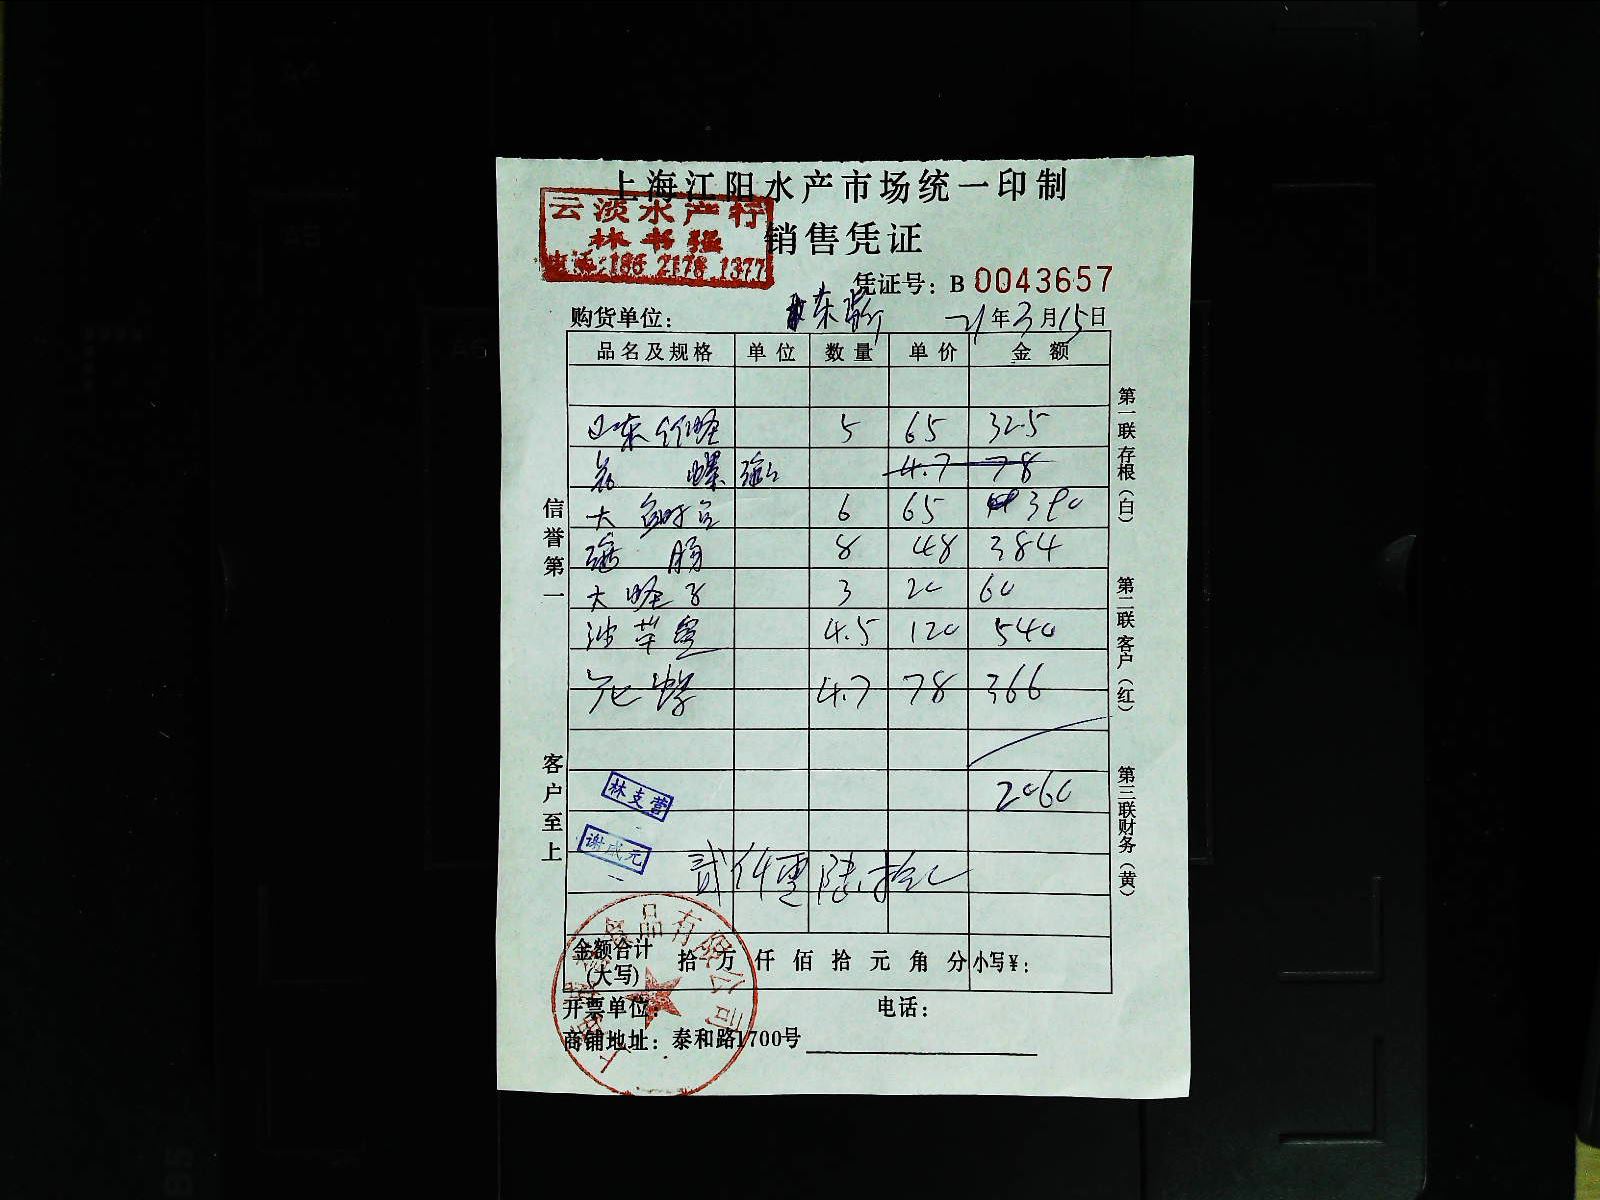 上海江阳水产市场统一印制
云淡水产行
林书强
电话:186 2178 1377
销售凭证
凭证号: B 0043657
购货单位: 21年3月15日
品名及规格 单位 数量 单价 金额
山东竹蛏 5 65 325
螺 4.7 78
大 6 65 390
肠 8 48 384
大蛏子 3 20 60
4.5 120 540
花螺 4.7 78 366
2060
林支营
谢成元
贰仟零陆拾元
金额合计(大写) 拾 万 仟 佰 拾 元 角 分 小写¥:
开票单位: 电话:
商铺地址: 泰和路1700号
信誉第一
客户至上
第一联存根(白)
第二联客户(红)
第三联财务(黄)
食品有限公司